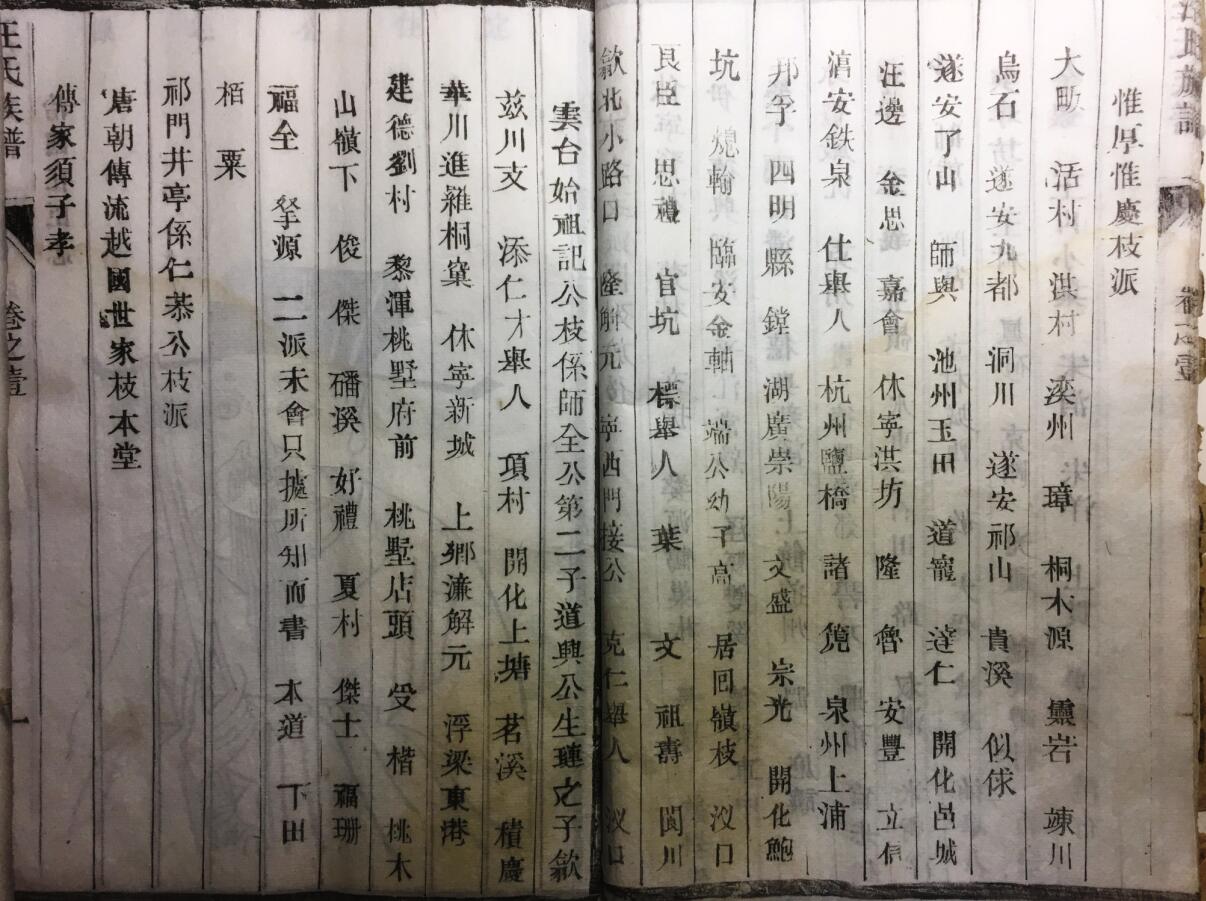 汪氏族譜
卷之壹
惟厚惟慶枝派
大畈　活村　洪村　滦州　璋　桐木源　靈岩　竦川
烏石　遂安九都　洞川　遂安祁山　貴溪　似俅
遂安了山　師與　池州玉田　道寵　達仁　開化邑城
汪邊　金思義　嘉會　休寧洪坊　隆　魯　安豐　立信
淯安鉄泉　仕舉人　杭州鹽橋　諸　箎　泉州上浦
邦孚　四明縣　鏜　湖廣崇陽　文盛　宗光　開化鮑
坑　熜翰　臨安金軸　端公幼子高　居回嶺枝　汊口
艮臣　思禮　官坑　標舉人　葉　文　祖壽　閬川
歙北小路口　隆解元　寧西門接公　克仁舉人　汊口
雲台始祖記公枝係師全公第二子道興公生璉之子歙
茲川支　添仁才舉人　項村　開化上塘　茗溪　積慶
華川進羅桐窠　休寧新城　上鄉濂解元　浮梁東港
建德劉村　黎渾桃墅府前　桃墅店頭　受　楷　桃木
山嶺下　俊　傑　磻溪　好禮　夏村　傑士　福珊
福全　拏源　二派未會只據所知而書　本道　下田
栢　粟
祁門井亭係仁恭公枝派
唐朝傳流越國世家枝本堂
傳家須子孝
汪氏族譜
卷之壹
一